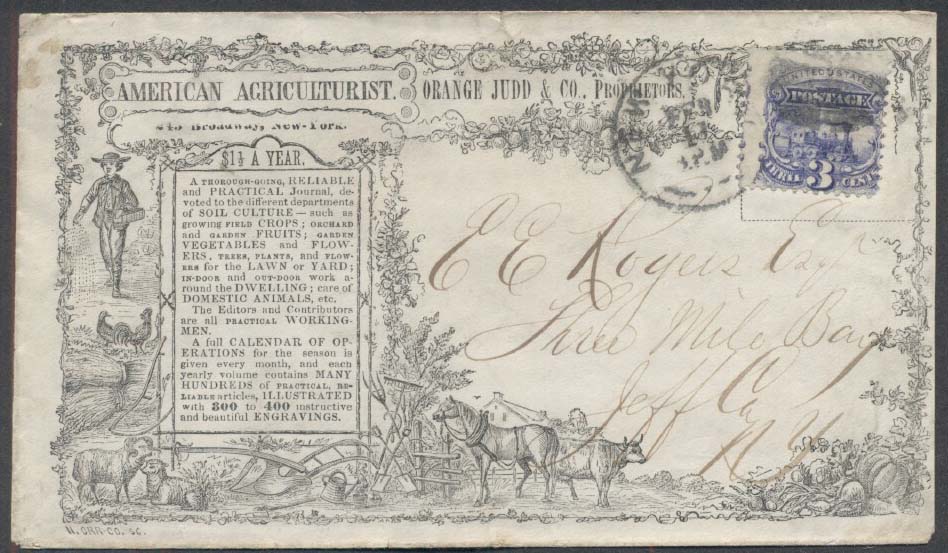 AMERICAN AGRICULTURIST. ORANGE JUDD & CO., PROPRIETORS.
245 Broadway, New-York.
$1½ A YEAR.
A THOROUGH-GOING, RELIABLE
and PRACTICAL Journal, de-
voted to the different departments
of SOIL CULTURE — such as
growing FIELD CROPS; ORCHARD
and GARDEN FRUITS; GARDEN
VEGETABLES and FLOW-
ERS, TREES, PLANTS, and FLOW-
ERS for the LAWN or YARD;
IN-DOOR and OUT-DOOR work a-
round the DWELLING; care of
DOMESTIC ANIMALS, etc.
The Editors and Contributors
are all PRACTICAL WORKING-
MEN.
A full CALENDAR OF OP-
ERATIONS for the season is
given every month, and each
yearly volume contains MANY
HUNDREDS of PRACTICAL, RE-
LIABLE articles, ILLUSTRATED
with 300 to 400 instructive
and beautiful ENGRAVINGS.
N. ORR CO.
NEW
FEB
P.M
UNITED STATES
POSTAGE
THREE 3 CENTS
E E Rogers Esqr
Three Mile Bay
Jeff Co
N.Y.